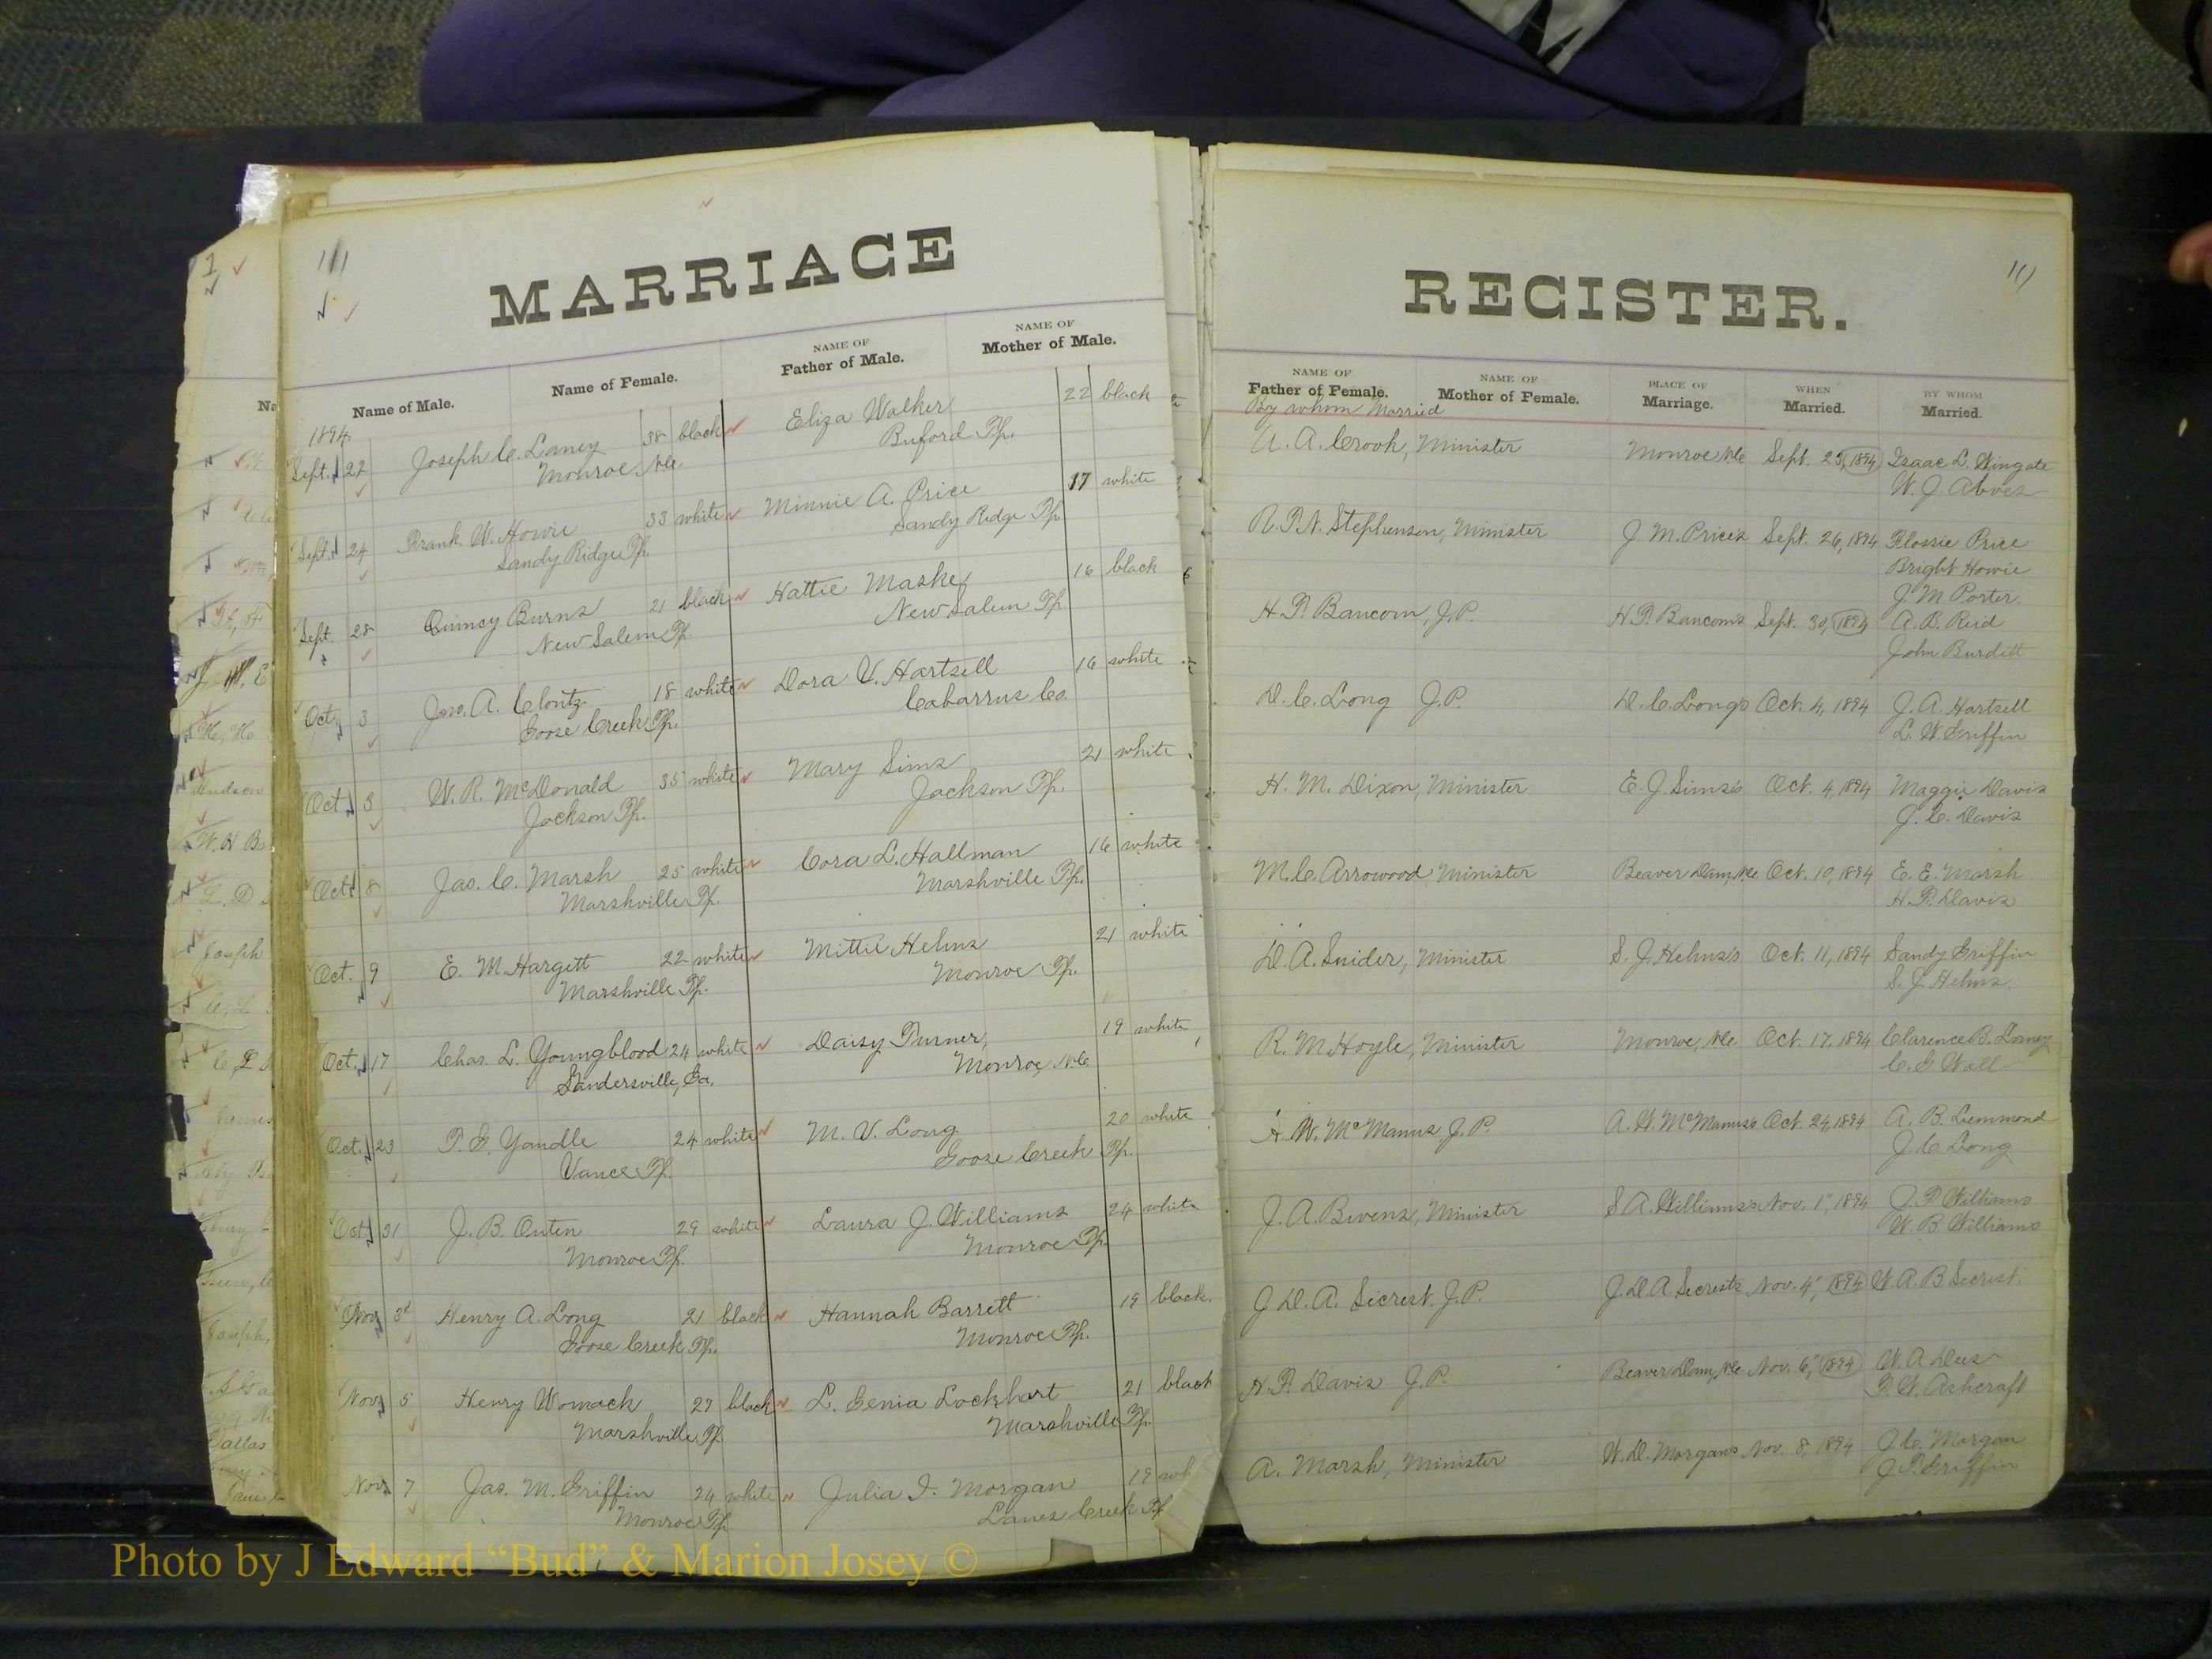 111
MARRIAGE
NAME OF
NAME OF
Name of Male.
Name of Female.
Father of Male.
Mother of Male.
1894
Sept. 22 Joseph C. Laney 38 black Eliza Walker 22 black
Monroe N.C. Buford Tp.
Sept. 24 Frank W. Howie 33 white Minnie A. Price 17 white
Sandy Ridge Tp. Sandy Ridge Tp.
Sept. 28 Quincy Burns 21 black Hattie Maske 16 black
New Salem Tp. New Salem Tp.
Oct. 3 Jno. A. Clontz 18 white Dora V. Hartsell 16 white
Goose Creek Tp. Cabarrus Co.
Oct. 3 W. R. McDonald 35 white Mary Sims 21 white
Jackson Tp. Jackson Tp.
Oct. 8 Jas. C. Marsh 25 white Cora L. Hallman 16 white
Marshville Tp. Marshville Tp.
Oct. 9 E. M. Hargett 22 white Mittie Helms 21 white
Marshville Tp. Monroe Tp.
Oct. 17 Chas. L. Youngblood 24 white Daisy Turner, 19 white
Sandersville, Ga. Monroe, N.C.
Oct. 23 T. G. Yandle 24 white M. V. Long 20 white
Vance Tp. Goose Creek Tp.
Oct. 31 J. B. Outen 29 white Laura J. Williams 24 white
Monroe Tp. Monroe Tp.
Nov. 3d Henry A. Long 21 black Hannah Barrett 19 black.
Goose Creek Tp. Monroe Tp.
Nov. 5 Henry Womack 27 black L. Genia Lockhart 21 black
Marshville Tp. Marshville Tp.
Nov. 7 Jas. M. Griffin 24 white Julia I. Morgan 19 wh
Monroe Tp. Lanes Creek Tp.
REGISTER.
NAME OF
NAME OF
PLACE OF
WHEN
BY WHOM
Father of Female.
Mother of Female.
Marriage.
Married.
Married.
By whom Married
A. A. Crook, Minister Monroe N.C. Sept. 23, 1894 Isaac L. Wingate
R. P. N. Stephenson, Minister J. M. Price's Sept. 26, 1894 Flossie Price
Bright Howie
J. M. Porter.
H. P. Baucom, J.P. H. P. Baucom's Sept. 30, 1894 A. B. Reid
John Burditt
D. C. Long J.P. D. C. Long's Oct. 4, 1894 J. A. Hartsell
L. W. Griffin
H. M. Dixon, Minister E. J. Sims's Oct. 4, 1894 Maggie Davis
J. C. Davis
M. C. Arrowood, Minister Beaver Dam, N.C. Oct. 10, 1894 E. E. Marsh
H. P. Davis
D. A. Snider, Minister S. J. Helms's Oct. 11, 1894 Sandy Griffin
S. J. Helms.
R. M. Hoyle, Minister Monroe, N.C. Oct. 17, 1894 Clarence B.
C. G. Wall
A. W. McManus J.P. A. W. McManus's Oct. 24, 1894 A. B. Lemmond
J. C. Long
J. A. Bivens, Minister S. A. Williams's Nov. 1", 1894 J. P. Williams
W. B. Williams
J. D. A. Secrest. J.P. J. D. A. Secrest's Nov. 4", 1894 W. A. B. Secrest.
H. P. Davis J.P. Beaver Dam, N.C. Nov. 6", 1894 W. A. Dees
T. W. Ashcraft
A. Marsh, Minister W. D. Morgan's Nov. 8, 1894 J. C. Morgan
J. T. Griffin
Photo by J Edward “Bud” & Marion Josey ©